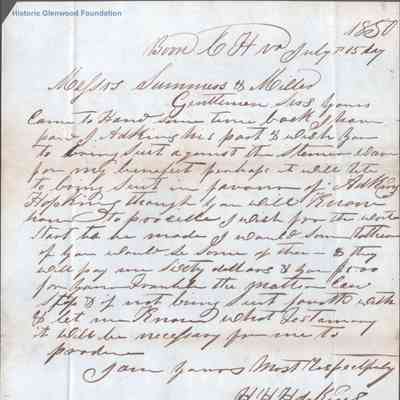 Historic Glenwood Foundation
1850
Boon C H va July 15 day
Messrs Summers & Miller
Gentlemen Sirs Yours
Came to Hand some time back I have
J. Adkins his part & wish you
to bring Suit against the
for my benefit perhaps it will
to bring Suit in favour of Adkins
Hopkins though you will Know
how to procede I wish for the
to be made I would
of you would be Some of them & they
will pay me Sixty dollars & you
for your trouble the matter can
Stop & if not bring Suit
& let me Know what Testamony
it will be necessary for me to
produce
I am yours Most Respectfully
H H